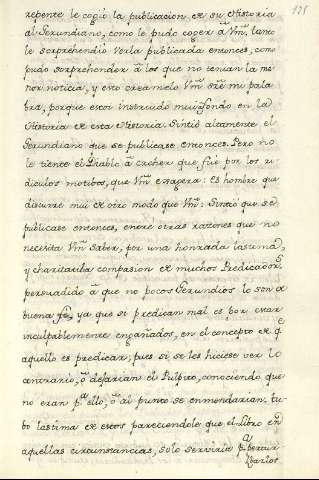 121
repente le cogiò la publicacion de su Historia
al Gerundiano, como le pudo coger à Vmd, tanto
le sorprehendio verla publicada entonces, como
pudo sorprehender à los que no tenian la me-
nor noticia, y esto creamelo Vmd sre mi pala
bra, porque estoi instruido mui à fondo en la
Historia de esta Historia. Sintiò altamente el
Gerundiano que se publicase entonces. Pero no
le tiente el Diablo à creher que fuè por los ri
diculos motibos, que Vmd exagera: Es hombre que
discurre mui de otro modo que Vmd: Sintiò que se
publicase entonces, entre otras razones que no
necesita Vmd saber, por una honrada lastima,
y charitatiba compasion de muchos Predicadors
persuadido à que no pocos Gerundios lo son de
buena fee, ya que si predican mal es por estar
inculpablemente engañados, en el concepto de q
aquello es predicar; pues si se les hiciese ver lo
contrario, ò dejarian el Pulpito, conociendo que
no eran pa ello, ò al punto se enmendarian: tu-
bo lastima de estos pareciendole que el Libro en
aquellas circunstancias, solo serviria pa pertur
barlos